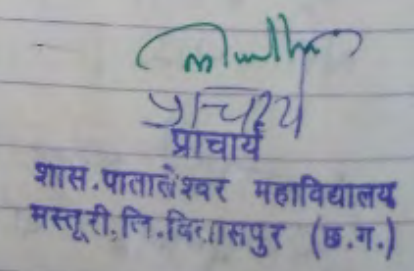 प्राचार्य
प्राचार्य
शास.पातालेश्वर महाविद्यालय
मस्तूरी,जि.बिलासपुर (छ.ग.)